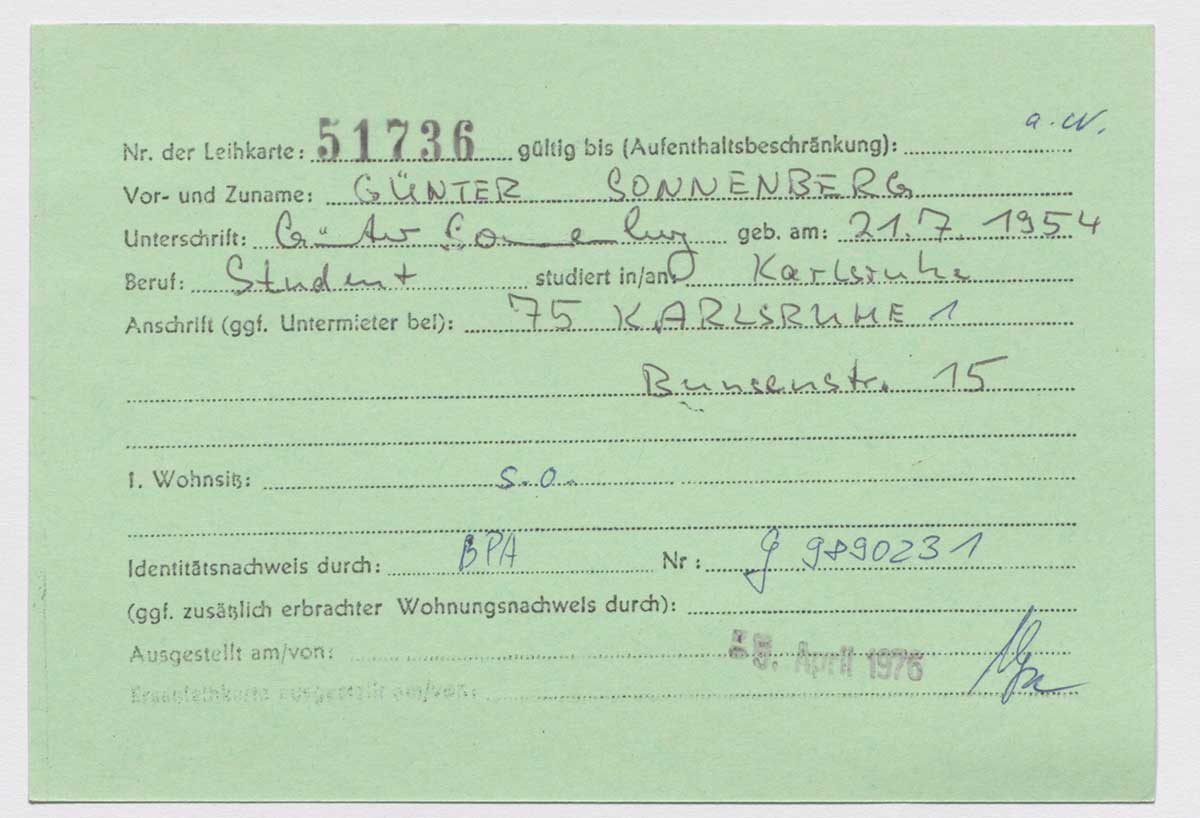 Nr. der Leihkarte: 51736 gültig bis (Aufenthaltsbeschränkung): a.W.
Vor- und Zuname: GÜNTER SONNENBERG
Unterschrift: Günter Sonnenberg geb. am: 21.7.1954
Beruf: Student studiert in/an: Karlsruhe
Anschrift (ggf. Untermieter bei): 75 KARLSRUHE 1
Bunsenstr. 15
1. Wohnsitz: s.o.
Identitätsnachweis durch: BPA Nr: G 9890231
(ggf. zusätzlich erbrachter Wohnungsnachweis durch):
Ausgestellt am/von: April 1976
Ersatzleihkarte ausgestellt am/von: